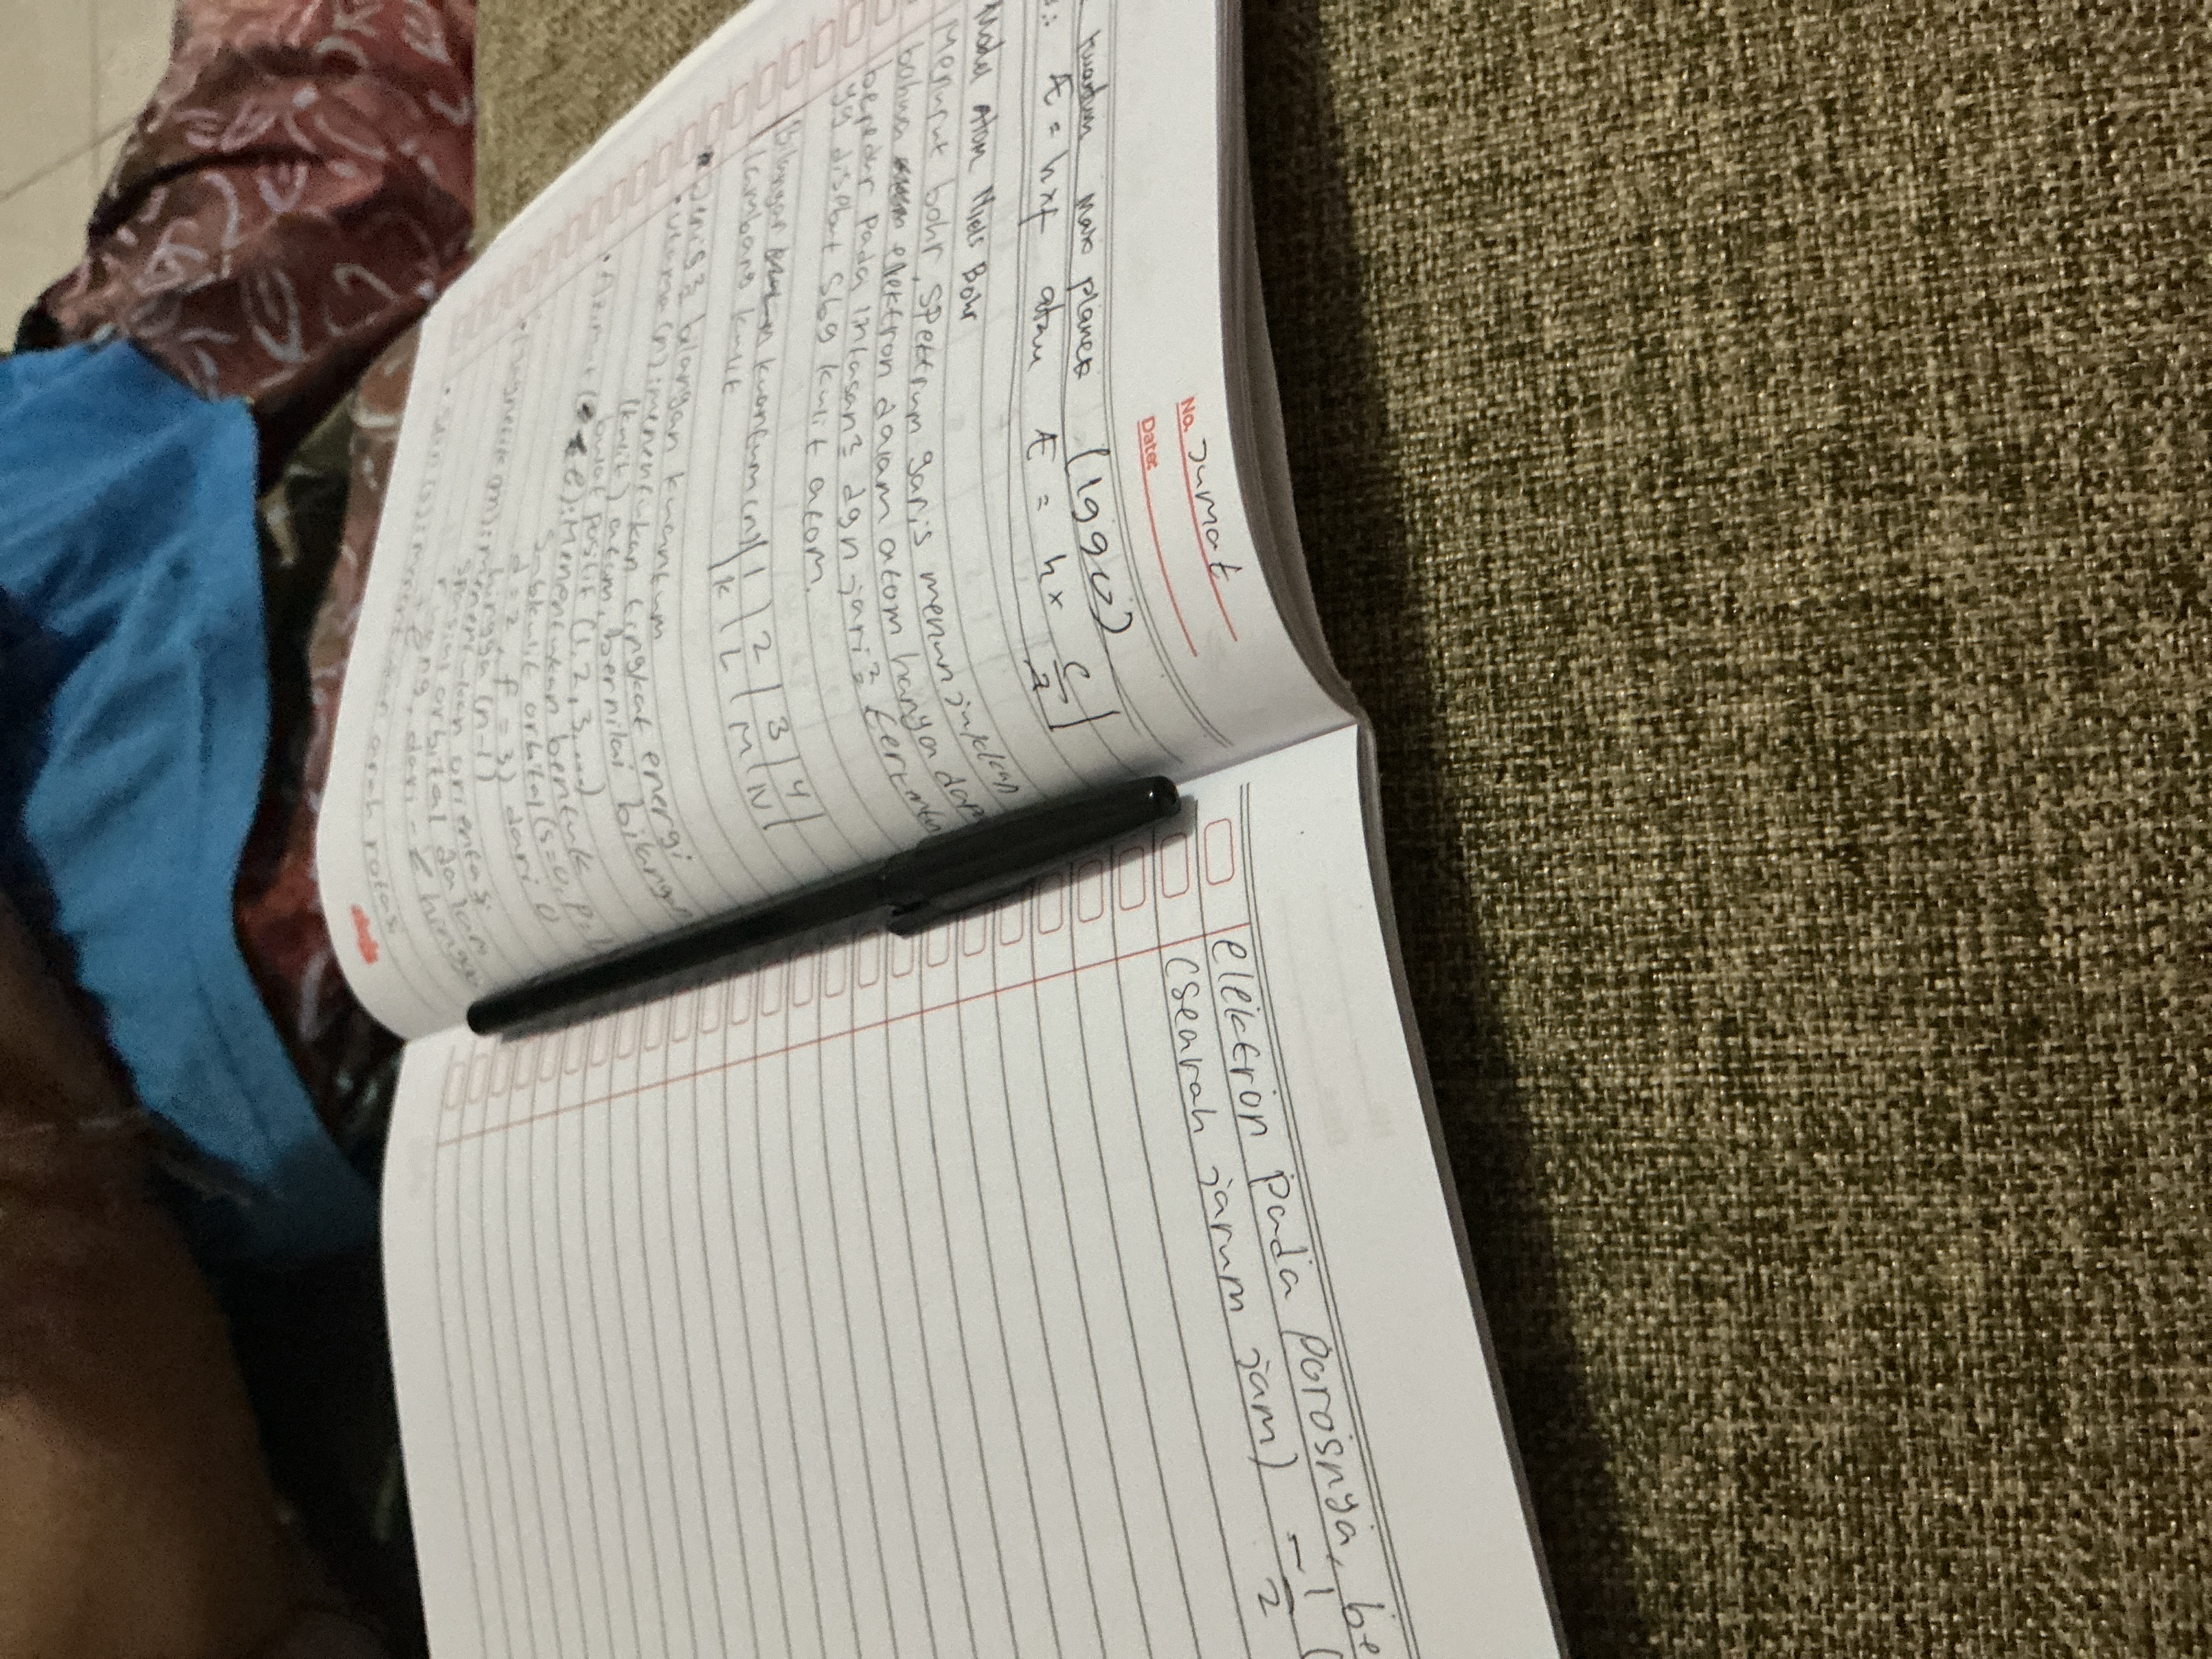 No. Jumat
Date:
kuantum Max planck (1900)
E = h x f atau E = h x c/λ
Model Atom Niels Bohr
Menurut bohr, spektrum garis menunjukkan
bahwa elektron dalam atom hanya dap
beredar pada lintasan² dgn jari² tertentu
yg disebut sbg kulit atom.
Bilangan kuantum (n) | 1 | 2 | 3 | 4 |
Lambang kulit | K | L | M | N |
* Jenis² bilangan kuantum
• Utama (n): menentukan tingkat energi
(kulit) atom, bernilai bilangan
bulat positif (1, 2, 3, ...)
• Azimut (ℓ): Menentukan bentuk
subkulit orbital (s=0, p=1
d=2 f=3) dari 0
hingga (n-1)
• Magnetik (m): menentukan orientasi
orbital dalam
ruang, dari -ℓ hingga
• Spin (s): menentukan arah rotasi
elektron pada porosnya, be
(searah jarum jam) -1/2 (